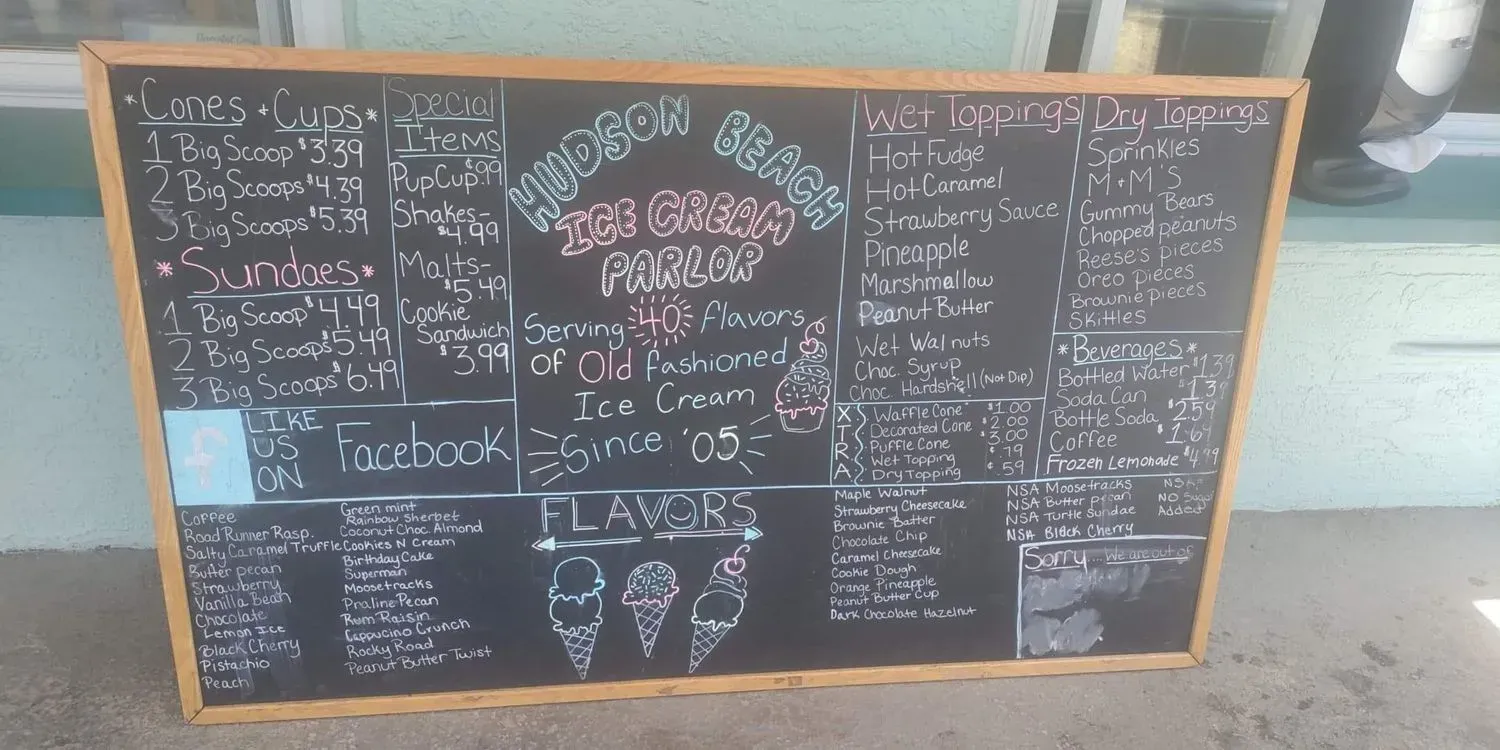 *Cones + Cups*
1 Big Scoop $3.39
2 Big Scoops $4.39
3 Big Scoops $5.39
*Sundaes*
1 Big Scoop $4.49
2 Big Scoops $5.49
3 Big Scoops $6.49
Special
Items
Pup Cup $.99
Shakes-
$4.99
Malts-
$5.49
Cookie
Sandwich
$3.99
f
LIKE
US
ON
Facebook
HUDSON BEACH
ICE CREAM
PARLOR
Serving 40 flavors
of Old fashioned
Ice Cream
Since '05
Wet Toppings
Hot Fudge
Hot Caramel
Strawberry Sauce
Pineapple
Marshmallow
Peanut Butter
Wet Walnuts
Choc. Syrup
Choc. Hardshell (Not Dip)
XTRA
Waffle Cone $1.00
Decorated Cone $2.00
Puffle Cone $3.00
Wet Topping ¢.79
Dry Topping ¢.59
Dry Toppings
Sprinkles
M+M'S
Gummy Bears
Chopped peanuts
Reese's pieces
Oreo pieces
Brownie pieces
Skittles
*Beverages*
Bottled Water $1.39
Soda Can $1.39
Bottle Soda $2.59
Coffee
Frozen Lemonade
FLAVORS
Coffee
Road Runner Rasp.
Salty Caramel Truffle
Butter pecan
Strawberry
Vanilla Bean
Chocolate
Lemon Ice
Black Cherry
Pistachio
Peach
Green mint
Rainbow Sherbet
Coconut Choc. Almond
Cookies N Cream
Birthday Cake
Superman
Moosetracks
Praline Pecan
Rum Raisin
Cappucino Crunch
Rocky Road
Peanut Butter Twist
Maple Walnut
Strawberry Cheesecake
Brownie Batter
Chocolate Chip
Caramel Cheesecake
Cookie Dough
Orange Pineapple
Peanut Butter Cup
Dark Chocolate Hazelnut
NSA Moosetracks
NSA Butter pecan
NSA Turtle Sundae
NSA Black Cherry
NO Sugar
Added
Sorry... We are out of